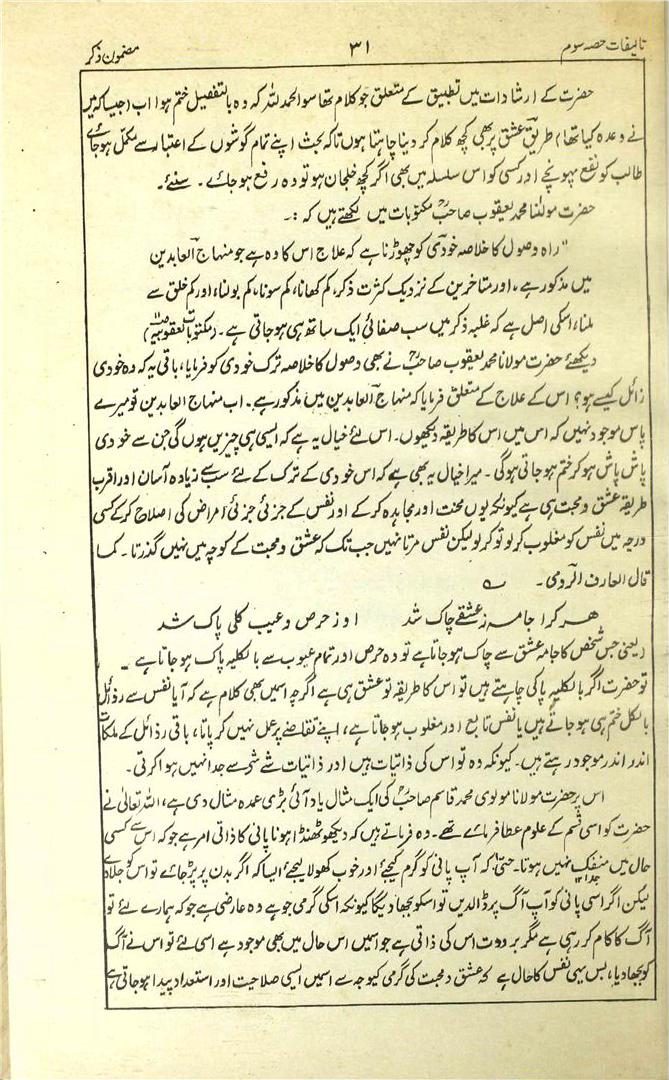 تالیفات حصہ سوم
۳۱
مضمون ذکر
حضرت کے ارشادات میں تطبیق کے متعلق جو کلام تھا سو الحمدللہ کہ وہ بالتفصیل ختم ہوا اب (جیسا کہ میں
نے وعدہ کیا تھا) طریق عشق پر بھی کچھ کلام کر دینا چاہتا ہوں تاکہ بحث اپنے تمام گوشوں کے اعتبار سے مکمل ہو جائے
طالب کو نفع پہونچے اور کسی کو اس سلسلہ میں بھی اگر کچھ خلجان ہو تو وہ رفع ہو جائے۔ سنئے۔
حضرت مولانا محمد یعقوب صاحبؒ مکتوبات میں لکھتے ہیں کہ :۔
"راہ وصول کا خلاصہ خودی کو چھوڑنا ہے کہ علاج اس کا وہ ہے جو منہاج العابدین
میں مذکور ہے، اور متاخرین کے نزدیک کثرت ذکر، کم کھانا، کم سونا، کم بولنا، اور کم خلق سے
ملنا، اسکی اصل ہے کہ غلبہ ذکر میں سب صفائی ایک ساتھ ہی ہو جاتی ہے۔ (مکتوبات یعقوبیہ)
دیکھئے حضرت مولانا محمد یعقوب صاحبؒ نے بھی وصول کا خلاصہ ترک خودی کو فرمایا، باقی یہ کہ وہ خودی
زائل کیسے ہو؟ اس کے علاج کے متعلق فرمایا کہ منہاج العابدین میں مذکور ہے۔ اب منہاج العابدین تو میرے
پاس موجود نہیں کہ اس میں اس کا طریقہ دیکھوں۔ اس لئے خیال یہ ہے کہ ایسی ہی چیزیں ہوں گی جن سے خودی
پاش پاش ہو کر ختم ہو جاتی ہوگی۔ میرا خیال یہ بھی ہے کہ اس خودی کے ترک کے لئے سب سے زیادہ آسان اور اقرب
طریقہ عشق و محبت ہی ہے کیونکہ یوں محنت اور مجاہدہ کرکے اور نفس کے جزئی جزئی امراض کی اصلاح کرکے کسی
درجہ میں نفس کو مغلوب کر لو تو کر لو لیکن نفس مرتا نہیں جب تک کہ عشق و محبت کے کوچہ میں نہیں گذرتا۔ کما
قال العارف الرومی۔
ہر کرا جامہ ز عشقے چاک شد او ز حرص و عیب کلی پاک شد
(یعنی جس شخص کا جامہ عشق سے چاک ہو جاتا ہے تو وہ حرص اور تمام عیوب سے بالکلیہ پاک ہو جاتا ہے۔
تو حضرت اگر بالکلیہ پاکی چاہتے ہیں تو اس کا طریقہ تو عشق ہی ہے اگرچہ اسمیں بھی کلام ہے کہ آیا نفس سے رذائل
بالکل ختم ہی ہو جاتے ہیں یا نفس تابع اور مغلوب ہو جاتا ہے، اپنے تقاضے پر عمل نہیں کر پاتا، باقی رذائل کے ملکات
اندر اندر موجود رہتے ہیں۔ کیونکہ وہ تو اس کی ذاتیات ہیں اور ذاتیات شے شے سے جدا نہیں ہوا کرتی۔
اس پر حضرت مولانا مولوی محمد قاسم صاحبؒ کی ایک مثال یاد آئی بڑی عمدہ مثال دی ہے، اللہ تعالیٰ نے
حضرت کو اسی قسم کے علوم عطا فرمائے تھے۔ وہ فرماتے ہیں کہ دیکھو ٹھنڈا ہونا پانی کا ذاتی امر ہے جو کہ اس سے کسی
حال میں منفک نہیں ہوتا۔ حتیٰ کہ آپ پانی کو گرم کیجئے اور خوب کھولا لیجئے ایسا کہ اگر بدن پر پڑ جائے تو اس کو جلا دے
جدا ۱۲
لیکن اگر اسی پانی کو آپ آگ پر ڈالدیں تو اسکو بجھا دیگا کیونکہ اسکی گرمی جو ہے وہ عارضی ہے جو کہ ہمارے لئے تو
آگ کا کام کر رہی ہے مگر برودت اس کی ذاتی ہے جو اسمیں اس حال میں بھی موجود ہے اسی لئے تو اس نے آگ
کو بجھا دیا، بس یہی نفس کا حال ہے کہ عشق و محبت کی گرمی کیوجہ سے اسمیں ایسی صلاحیت اور استعداد پیدا ہو جاتی ہے